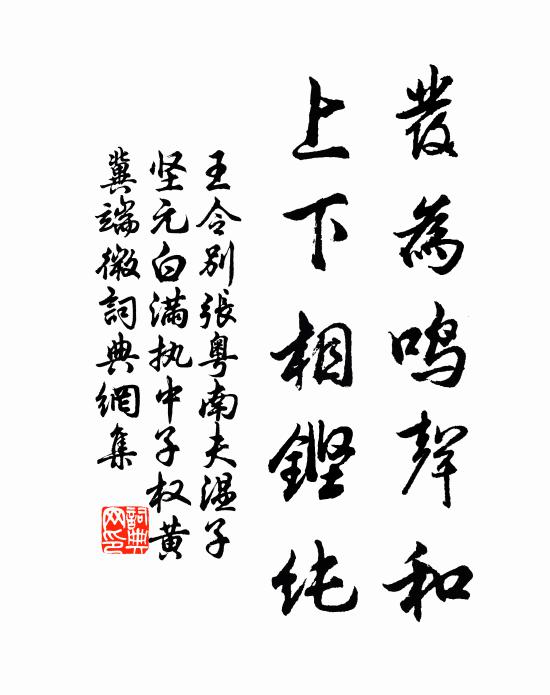 發為鸣聲和
上下相鏗纯
王令别張粤南夫湿子
坚元白满执中子权黄
冀端微詞典網集
詞典网印